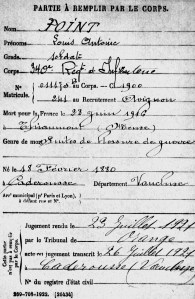 PARTIE À REMPLIR PAR LE CORPS.
Nom POINT
Prénoms Louis Antoine
Grade soldat
Corps 340e Regt d'Infanterie
N° 011170 au Corps. — Cl. 1900
Matricule. 241 au Recrutement Avignon
Mort pour la France le 22 juin 1916
à Thiaumont (Meuse)
Genre de mort Suites de blessure de guerre
Né le 18 Février 1880
à Caderousse Département Vaucluse
Arrt municipal (pr Paris et Lyon),
à défaut rue et N°.
Cette partie
n'est pas à remplir
par le Corps.
Jugement rendu le 29 Juillet 1921
par le Tribunal de Orange
acte ou jugement transcrit le 26 Juillet 1921
à Caderousse (Vaucluse)
N° du registre d'état civil
269-708-1922. [26434]